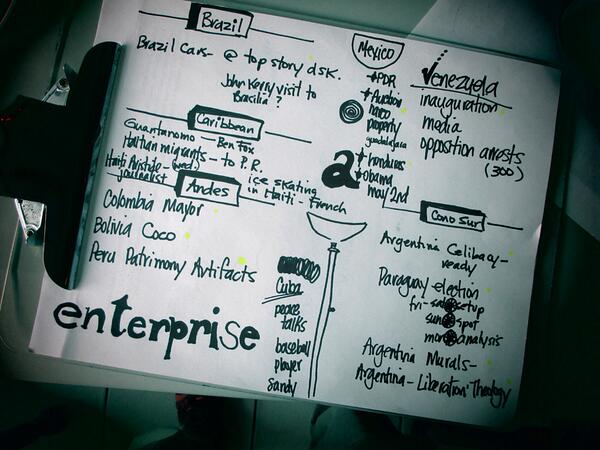 Brazil
Brazil Cars - @ top story dsk.
John Kerry visit to
Brasilia ?
Caribbean
Guantanomo - Ben Fox
Haitian migrants - to P.R.
Haiti Aristide - (wed.)
journalist
ice skating
in Haiti - French
Andes
Colombia Mayor
Bolivia Coco
Peru Patrimony Artifacts
enterprise
Mexico
PDR
Auction
narco
property
guadalajara
a
honduras
obama
may 2nd
Cuba
peace
talks
baseball
player
sandy
Venezuela
inauguration
media
opposition arrests
(300)
Cono Sur
Argentina Celibacy -
ready
Paraguay election
fri - setup
sun spot
mon analysis
Argentina Murals -
Argentina - Liberation Theology